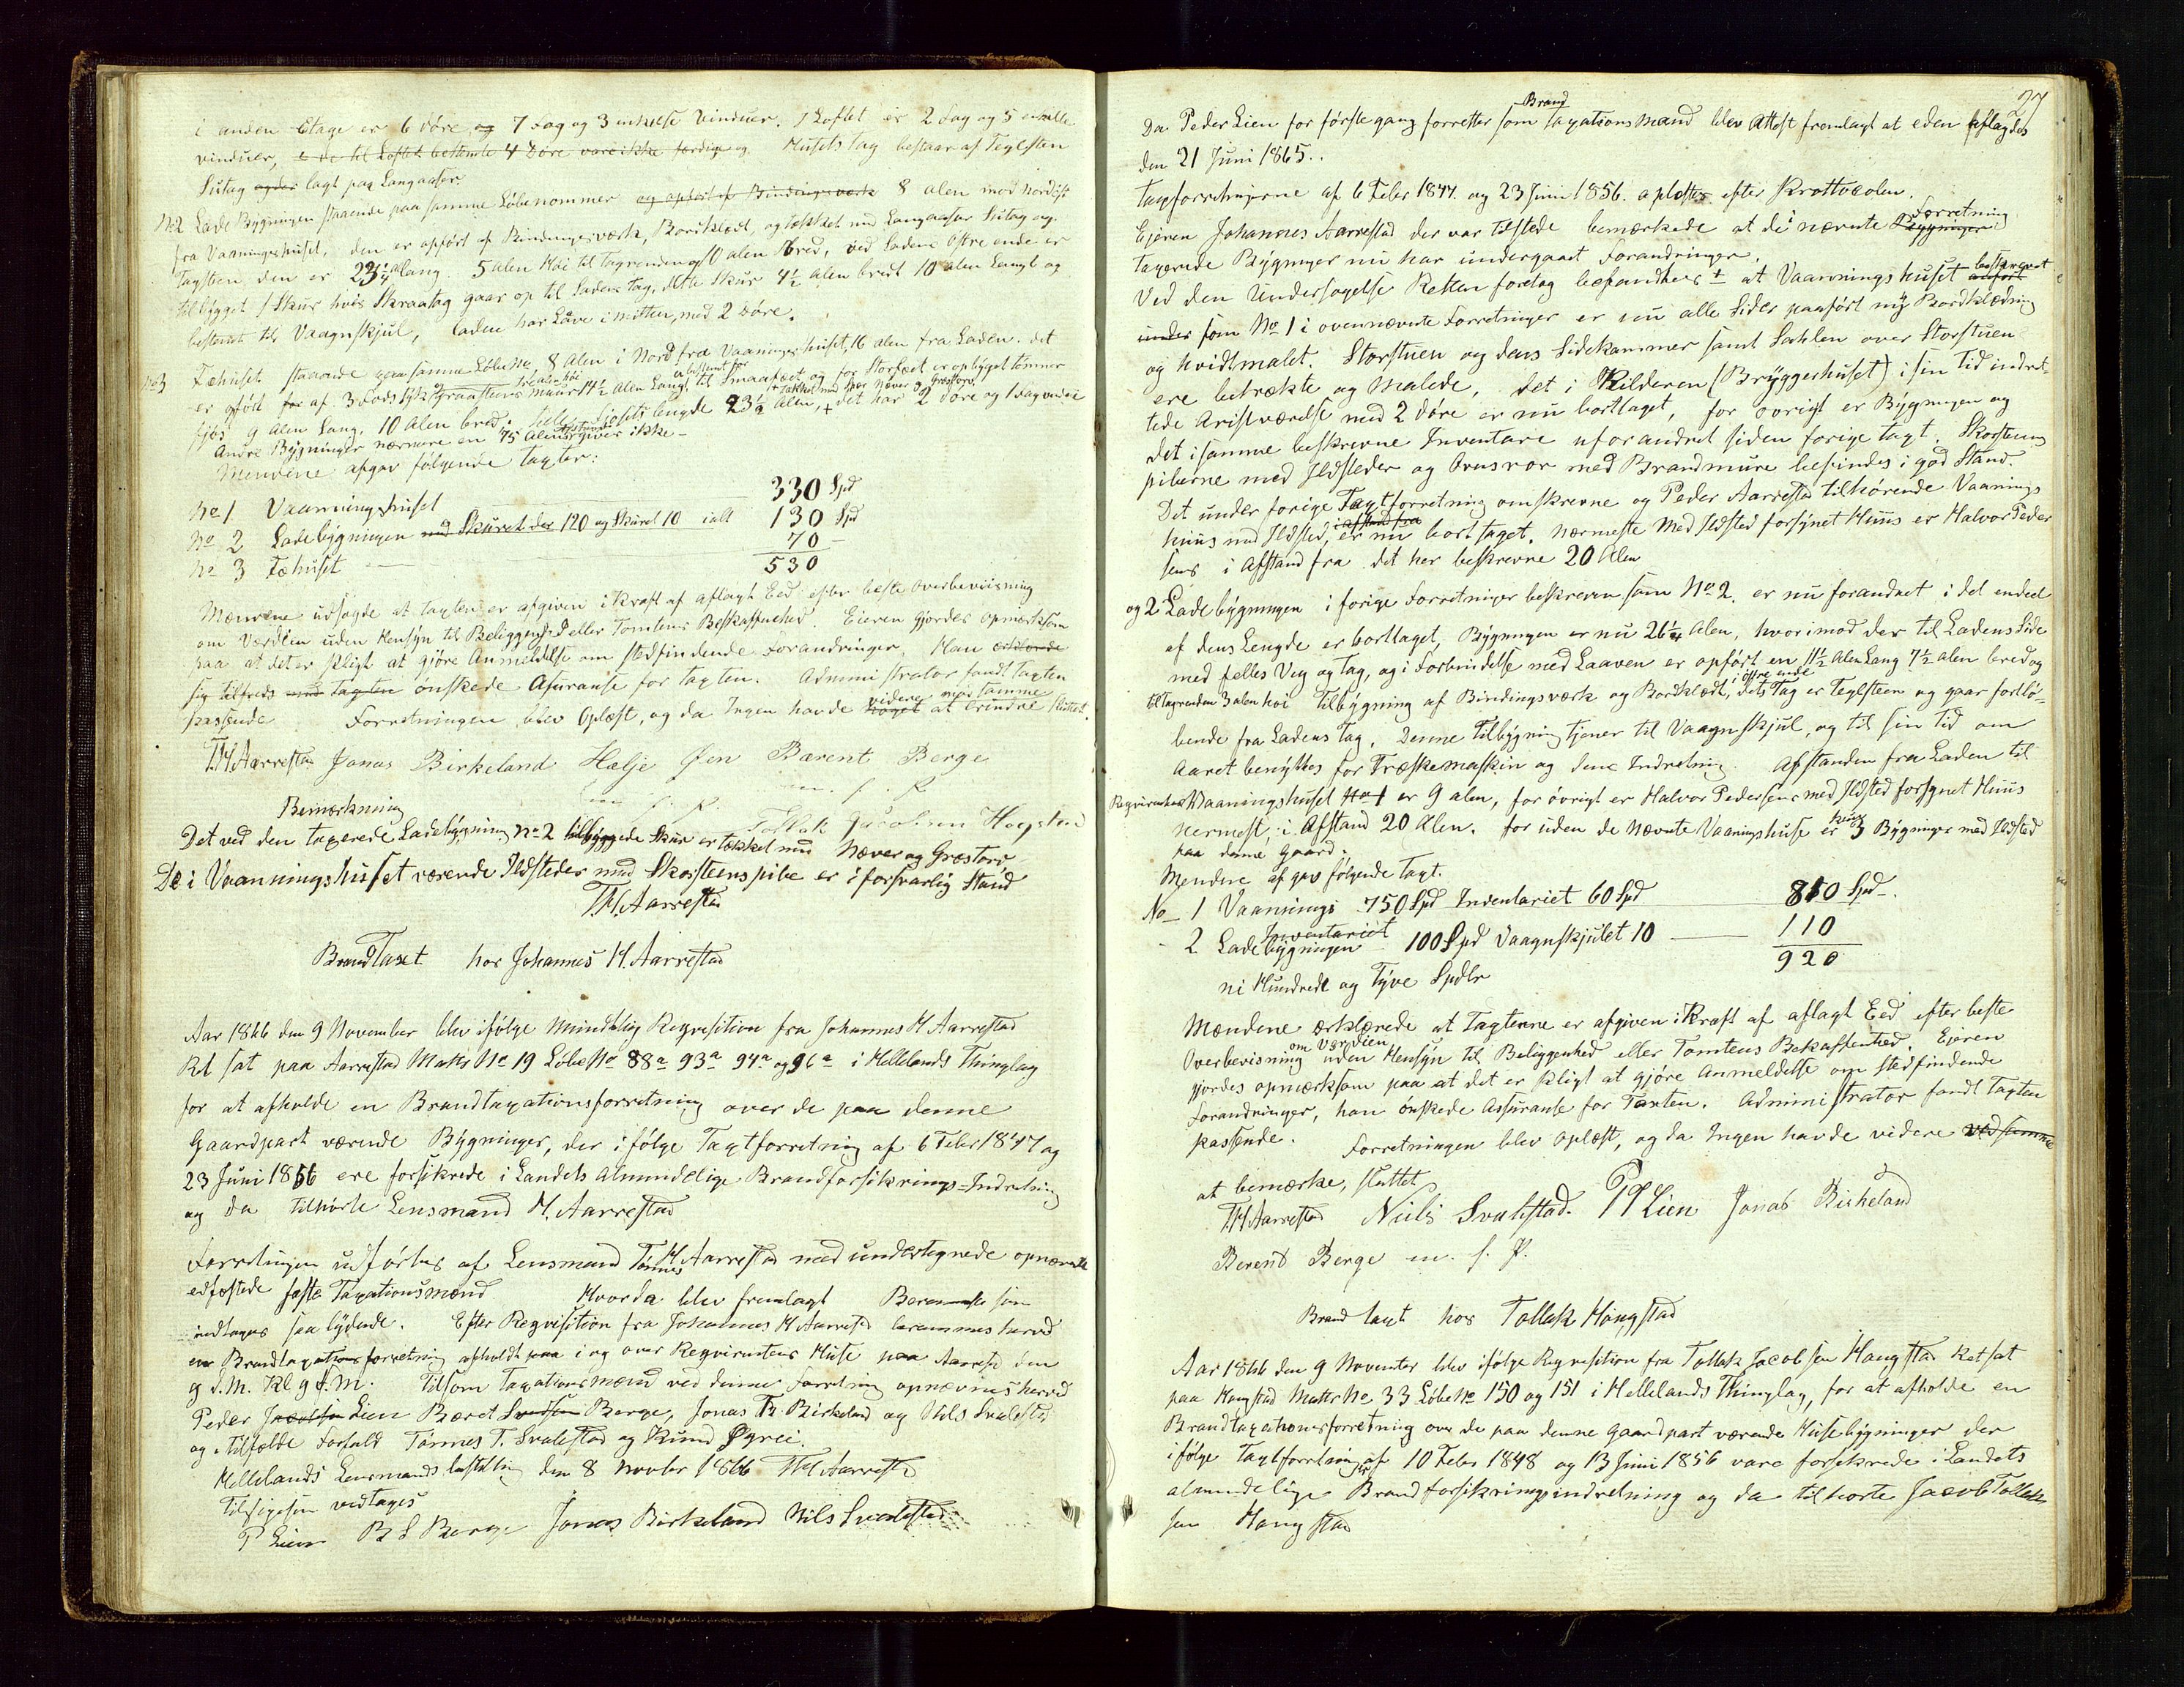 i anden Etage er 6 döre og 7 Fag og 3 enkelte Vinduer. I Loftet er 2 Fag og 5 enkelte
vinduer, de til Loftet bestemte 4 Döre vare ikke færdige og Husets Tag bestaar af Teglsten
Sutag lagt paa Langaaser.
No 2 Lade Bygningen staaende paa samme Löbenommer og opfört af Bindingsverk 8 alen mod Nordöst
fra Vaaningshuset, den er opfört af Bindingsværk, Bordklædt, og tækket med Langaaser Sutag og
Tagsten den er 23 1/4 a lang. 5 alen Höi til Tagrenden og 10 alen bred, ved Ladens Östre ende er
tilbygget 1 Skur hvis Skraatag gaar op til Ladens Tag, dette Skur 4 1/2 alen bredt 10 alen Langt og
bestemt til Vaagnskjul, Laden har Låve i mitten, med 2 Döre.
No 3 Fæhuset staaende paa samme Löbe No 8 alen i Nord fra Vaaningshuset, 16 alen fra Laden. det
er opfört for af 3 Fods tyk Graastens muur 14 1/2 alen Langt til Smaafæet og for Storfæet er opbygget tömmer
fjös 9 alen Lang, 10 Alen bred. hele Fjösets lengde 23 1/2 alen, + det har 2 döre og 1 Fag vindue
+ Takket med Næver og Græstorv.
Andre Bygninger nærmere en 75 Alens Afstand gives ikke –
Mendene afgav fölgende taxter:
No 1 Vaaningshuset 330 Spd
No 2 Ladebygningen med Skuret der 120 og Skuret 10 ialt 130 Spd
No 3 Fæhuset 70 –
530
Mænene udsagde at taxten er afgiven i Kraft af aflagt Eed efter beste Overbeviisning
om Værdien uden Hensyn til Beliggenhed eller Tomtens Beskaffenhed. Eieren gjordes opmerksom
paa at det er Pligt at gjöre Anmeldelse om stedfindende Forandringer. Han erklærede
sig tilfreds med Taxten önskede Asuranse for taxten. Administrator fandt taxten
passende Forretningen blev Oplæst, og da Ingen havde noget videre at erindre med samme sluttet.
T.H Aarrestad Jonas Birkeland Helje Öen Barent Berge
m. f. P. m. f. P.
Tollak Jacobsen Hogstad
Bemærkning
Det ved den taxerede Ladebygning No 2 tilbyggede Skur er tækket med Næver og Græstorv
De i Vaaningshuset værende Ildsteder med Skorsteenspibe er i forsvarlig Stand
T.H. Aarrestad
Brand Taxt hos Johannes H. Aarrestad
Aar 1866 den 9 November blev ifölge Mundtlig Reqvisition fra Johannes H Aarrestad
Ret sat paa Aarrestad Matr No 19 Löbe No 88a 93a 94a og 96a i Hellelands Thinglag
for at afholde en Brandtaxationsforretning over de paa denne
Gaardpart værende Bygninger, der ifölge Taxtforretning af 6 Febr 1847 og
23 Juni 1856 ere forsikrede i Landets Almindelige Brandforsikrings-Indretning
og da tilhörte Lensmand H. Aarrestad
Forretningen udförtes af Lensmand Tönnes H Aarrestad med undertegnede opnævnte
edfæstede faste Taxationsmænd Hvorda blev fremlagt Berammelse som
indtages saa lydende. Efter Reqvisition fra Johannes H Aarrestad berammes herved
en Brandtaxationsforretning afholdt paa i og over Reqvirentens Huse paa Aarrestad den
9 d.M. Kl 9 F.M. Til som Taxationsmænd ved denne Forretning opnævnes herved
Peder Jacobsen Lien Baret Svendsen Berge, Jonas Th Birkeland og Nils Svalestad
og i tilfælde Forfald Tönnes T. Svalestad og Knud Ögrei.
Hellelands Lensmands bestilling den 8 Novbr 1866 TH Aarrestad
Tilsigesen vedtages
P Lien B S Berge Jonas Birkeland Nils Svalestad
27
Da Peder Lien for förste gang forretter som Brand taxationsMand blev Attest fremlagt at eden aflagdes
den 21 Juni 1865..
Taxforretningerne af 6 Febr 1847. og 23 Juni 1856. oplæstes efter Prottocolen.
Ejeren Johannes Aarrestad der var tilstede bemærkede at de i nævnte Forretning Bygninger
taxerede Bygninger nu har undergaaet Forandringer.
Ved den Undersøgelse Retten foretog befandtes at Vaanings huset beskrevet anfört
under som No 1 i ovennævnte Forretninger er nu alle Sider paafört ny Bordklædning
og hvidtmalet. Storstuen og dens Sidekammer samt Sahlen over Storstuen
ere betrækte og Malede, det i Kilderen (Bryggerhuset) i sin Tid indret
tede Aristværelse med 2 döre er nu borttaget, for övrigt er Bygningen og
det i samme beskrevne Inventare uforandret siden forige taxt. Skorsteens
piberne med Ildsteder og Ovnsror med Brandmure befindes i god Stand.
Det under forige Taxtforretning omskrevne og Peder Aarrestad tilhörende Vaanings
huus med Ildsted, i afstand fra er nu bort taget. nærmeste Med Ildsted forsynet Huus er Halvor Peder
sens i Afstand fra det her beskrevne 20 Alen
og 2 Ladebygningen i forige Forretninger beskreven som No 2. er nu forandret i det endeel
af dens Lengde er borttaget, Bygningen er nu 26 1/4 Alen, hvorimod der til Ladens Side
med felles Veg og Tag, og i Forbindelse med Laaven er opfört en 11 1/2 Alen Lang 7 1/2 alen bred og
til Tagrenden 3 alen höi Tilbygning af Bindingsværk og Bordklædt, i östre ende dets Tag er Teglsteen og gaar fortlö-
bende fra Ladens Tag. Denne Tilbygning tjener til Vaagnskjul, og til sin Tid om
Aaret benyttes for Træskemaskin og dens Indretning. Afstanden fra Laden til
Reqvirentens Vaaningshuset No 1 er 9 alen, for övrigt er Halvor Pedersens med Ildsted forsynet Huus
nermest, i Afstand 20 Alen. for uden de nævnte Vaaningshuse er kuns 3 Bygninger med Ildsted
paa denne Gaard.
Mendene afgav fölgende Taxt.
No 1 Vaanings 750 Spd Inventariet 60 Spd 810 Spd.
2 Ladebygningen Inventariet 100 Spd Vaagnskjulet 10 110
920
ni Hundrede og Tyve Spdlr
Mændene erklærede at Taxterne er afgiven i Kraft af aflagt Eed efter beste
Overbevisning om Værdien uden Hensyn til Beliggenhed eller Tomtens Bekaffenhed. Ejeren
gjordes opmærksom paa at det er Pligt at gjöre Anmeldelse om stedfindende
Forandringer, han önskede Assuranse for Taxten. Administrator fandt Taxten
passende. Forretningen blev Oplæst, og da Ingen havde videre ved samme
at bemærke, sluttet
TH Aarrestad Niels Svalestad. P Lien Jonas Birkeland
Berent Berge m. f. P.
Brand taxt hos Tollak Haugstad
Aar 1866 den 9 November blev ifölge Reqvisition fra Tollak Jacobsen Haugstad Ret sat
paa Haugstad Matr No 33 Löbe No 150 og 151 i Hellelands Thinglag, for at afholde en
Brandtaxationsforretning over de paa denne Gaardpart værende Husebygninger der
ifölge Taxtforretning af 10 Febr 1848 og 13 Juni 1856 vare forsekrede i Landets
almindelige Brandforsikringsindretning og da tilhorte Jacob Tollak
sen Haugstad